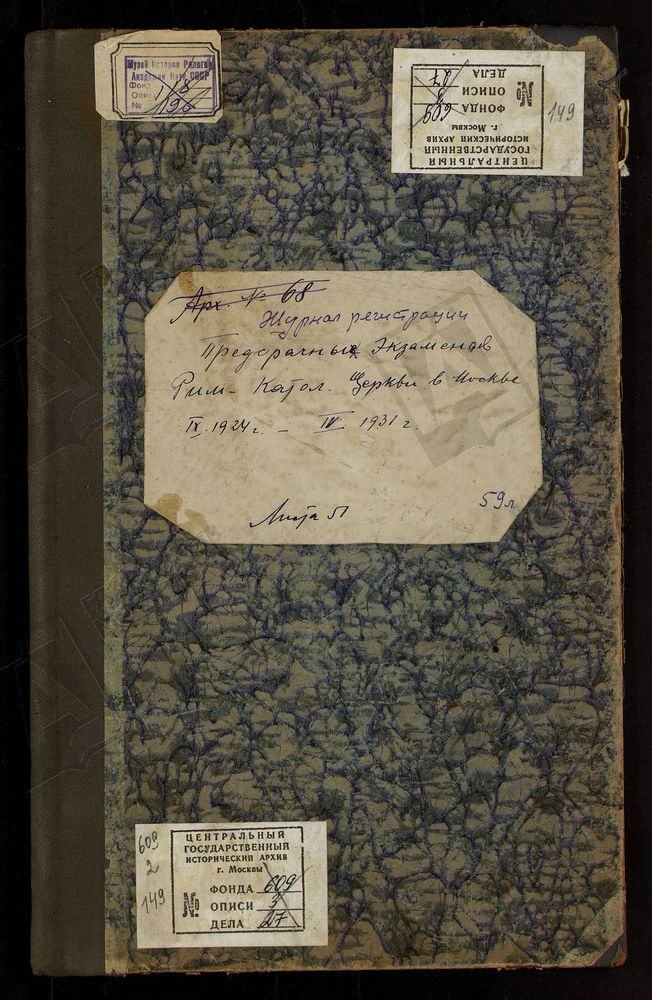 Музей Истории Религии
Академии Наук СССР
Фонд 1
Опись 8
№ 196
ЦЕНТРАЛЬНЫЙ
ГОСУДАРСТВЕННЫЙ
ИСТОРИЧЕСКИЙ АРХИВ
г. Москвы
№
ФОНДА 609
ОПИСИ 3
ДЕЛА 27
149
Арх. № 68
Журнал регистрации
Предбрачных Экзаменов
Рим-Катол. Церкви в Москве
IX.1924г. – IV. 1931 г.
59л.
Листа 51
609
2
149
ЦЕНТРАЛЬНЫЙ
ГОСУДАРСТВЕННЫЙ
ИСТОРИЧЕСКИЙ АРХИВ
г. Москвы
№
ФОНДА 609
ОПИСИ 3
ДЕЛА 27